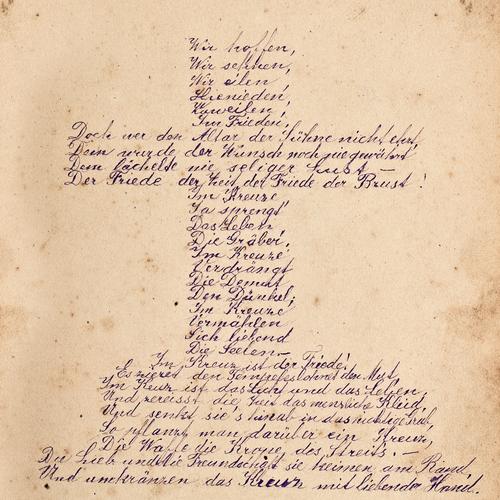 Wir hoffen,
Wir sehnen,
Wir eilen
Hienieden,
Zuweilen,
Im Frieden,
Doch wer den Altar der Sühne nicht ehrt,
Dem wurde der Wunsch noch nie gewährt
Dem lächelte nie seliger Lust —
Der Friede der Zeit, der Friede der Brust!
Im Kreuze
Ja sprengt
Das Leben
Die Gräber,
Im Kreuze
Verdrängt
Die Demut
Den Dünkel;
Im Kreuze
Vermählen
Sich liebend
Die Seelen —
Im Kreuz ist der Friede!
Es zieret den Tempel
Im Kreuz ist das Licht und das Leben,
Und zerreisst die Zeit das menschliche Kleid,
Und senkt sie's hinab in das Grab,
So pflanzt man darüber ein Kreuz,
Die Waffe die Krone des Streits. —
Die Lieb und die Freundschaft sie keimen am Rand
Und umkränzen das Kreuz mit liebender Hand.